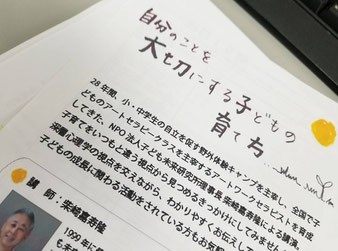 自分のことを
大切にする子どもの
育て方
28年間、小・中学生の自立を促す野外体験キャンプを主宰し、全国で子
どものアートセラピークラスを主宰するアートワークセラピストを育成
してきた、NPO法人子ども未来研究所理事長柴崎嘉寿隆による講演。
子育てをいつもと違う視点から見つめるきっかけにしてみませんか。
深層心理学の視点を交えながら、わかりやすくお伝えして
子どもの成長に関わる活動をされている方もお気軽
講 師：柴崎嘉寿隆